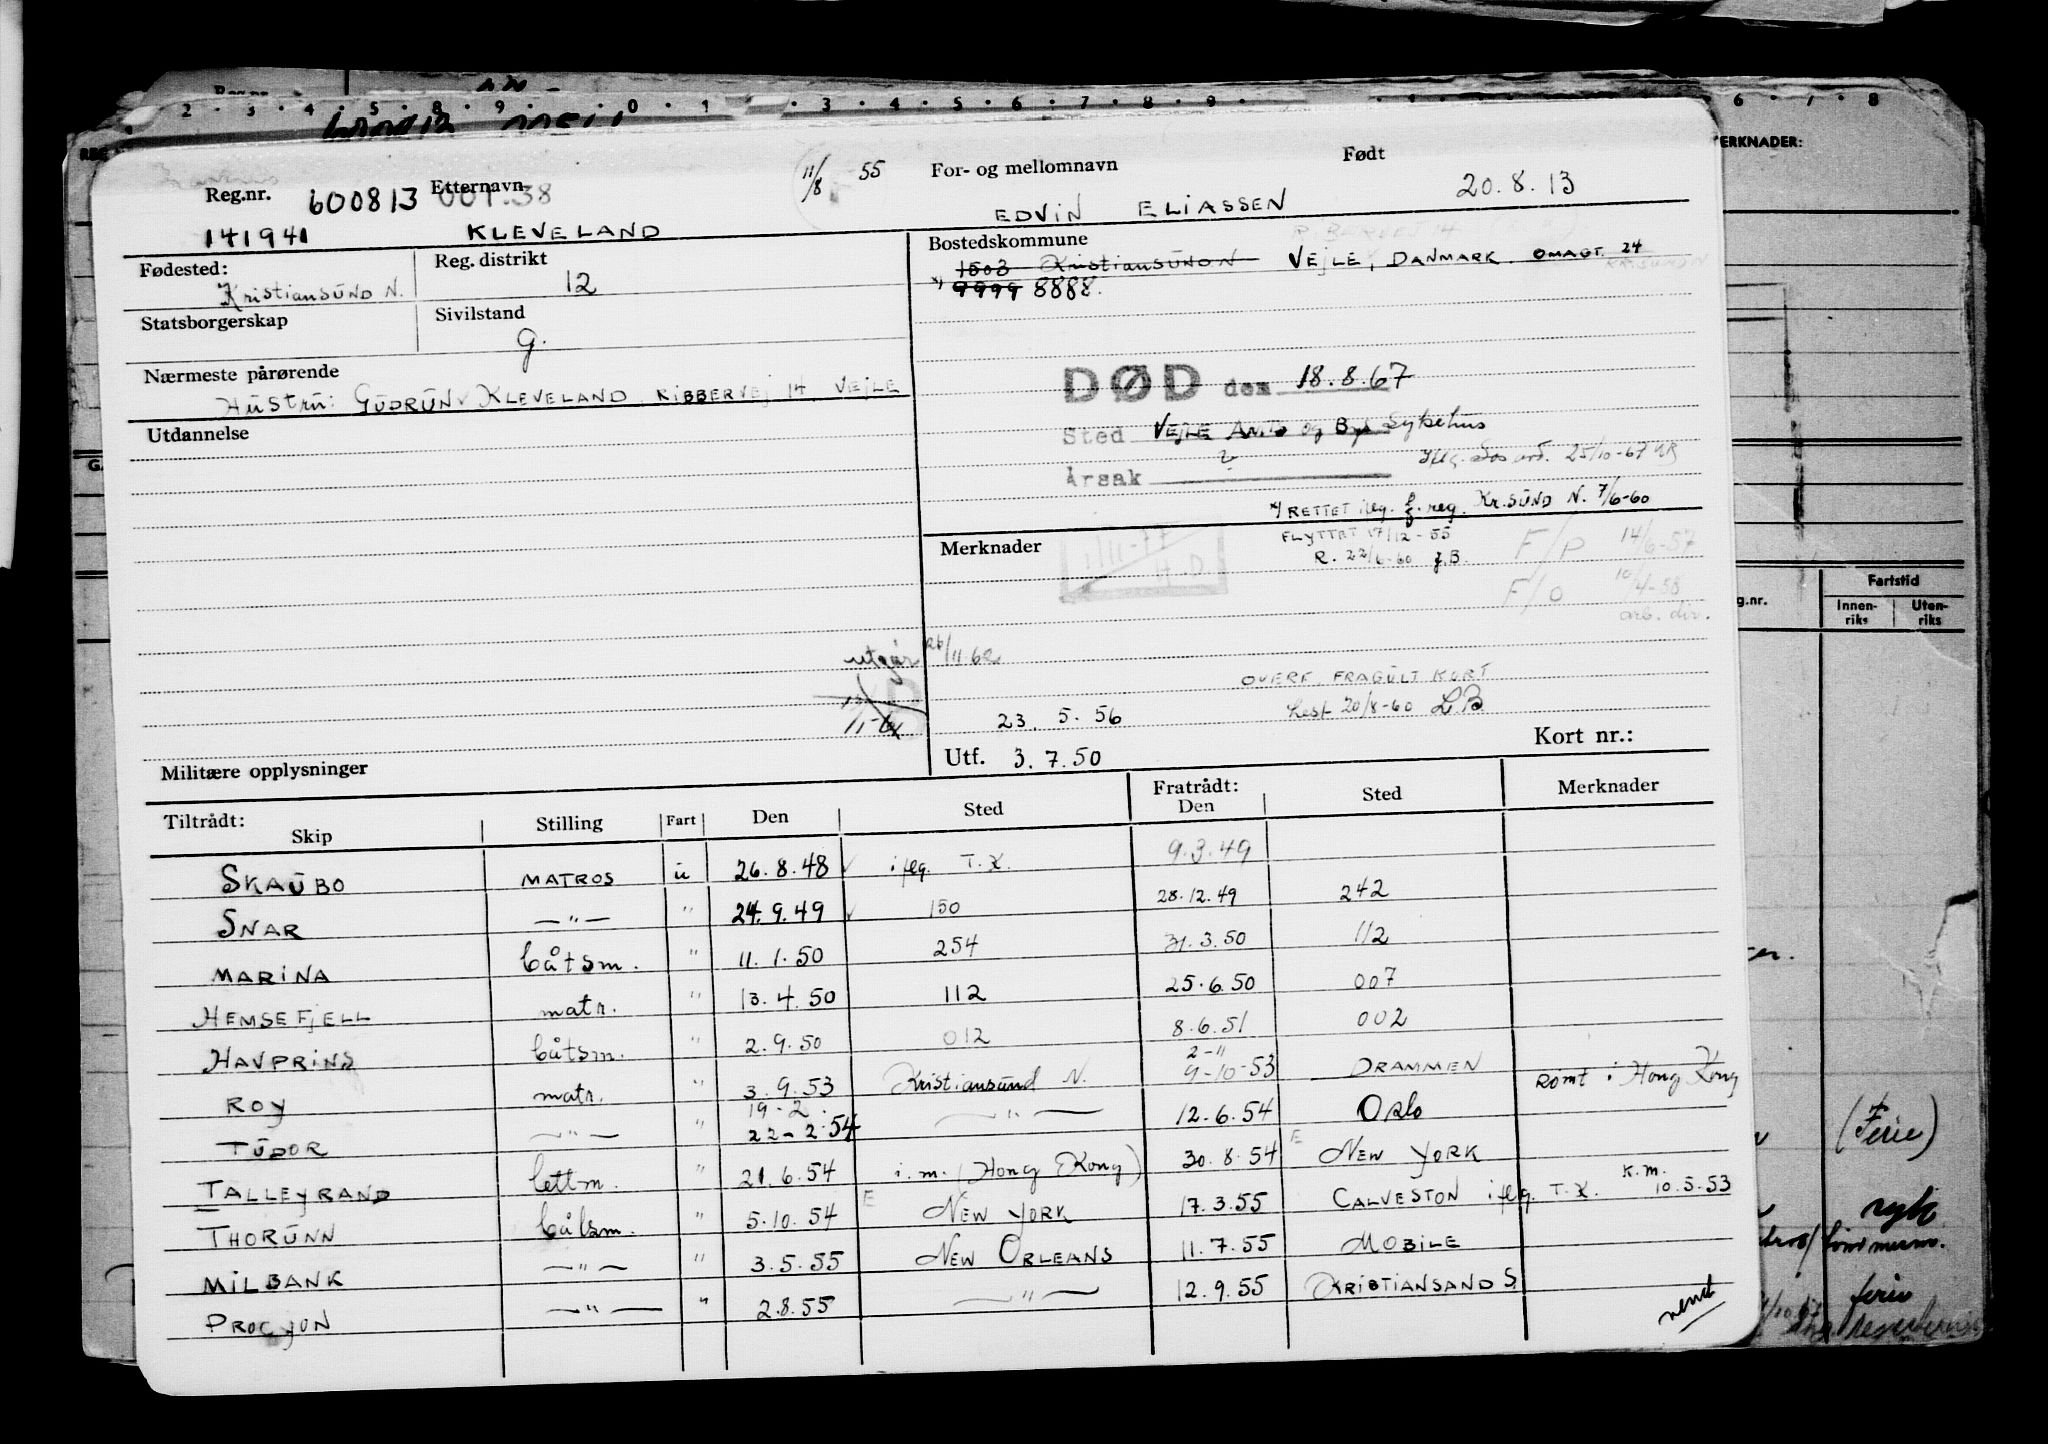 Reg.nr. 600813 Etternavn 001.38 11/8 55 For- og mellomnavn Født
141941 KLEVELAND EDVIN ELIASSEN 20.8.13
Fødested: Reg. distrikt Bostedskommune
Kristiansund N. 12 1503 Kristiansund N VEJLE, DANMARK. OMAGT. 24
9999 8888.
Statsborgerskap Sivilstand
G.
Nærmeste pårørende
Hustru: GUDRUN KLEVELAND, RIBBERVEJ 14, VEJLE
DØD den 18.8.67
Utdannelse
Sted VEJLE Amts og Bys Sykehus
Årsak ?
25/10-67
RETTET iflg. f.reg. KR.SUND N. 7/6-60
Merknader FLYTTET 17/12-55 F/P 14/6-57
R. 22/6-60 f.B. F/O 10/4-58
arb. div.
utgår 26/11.62
OVERF. FRA GULT KORT
23.5.56 Lest 20/8-60 LB
Militære opplysninger Utf. 3.7.50 Kort nr.:
Tiltrådt: Fratrådt:
Skip Stilling Fart Den Sted Den Sted Merknader
SKAUBO MATROS u 26.8.48 iflg. T.K. 9.3.49
SNAR —"— " 24.9.49 150 28.12.49 242
MARINA båtsm. " 11.1.50 254 31.3.50 112
HEMSEFJELL matr. " 13.4.50 112 25.6.50 007
HAVPRINS båtsm. " 2.9.50 012 8.6.51 002
ROY matr. " 3.9.53 Kristiansund N. 2-" 9-10-53 DRAMMEN Rømt i Hong Kong
TUDOR —"— " 19-2. 22-2.54 —"— 12.6.54 Oslo
TALLEYRAND lettm. " 21.6.54 i.m. (Hong Kong) 30.8.54 E NEW YORK
THORUNN båtsm. " 5.10.54 E NEW YORK 17.3.55 CALVESTON iflg. T.K. K.M. 10.5.53
MILBANK —"— " 3.5.55 NEW ORLEANS 11.7.55 MOBILE
PROCYON —"— " 2.8.55 —"— 12.9.55 KRISTIANSAND S.
vend
MERKNADER:
g.nr. Fartstid
Innen-riks Uten-riks
(Ferie)
ferie